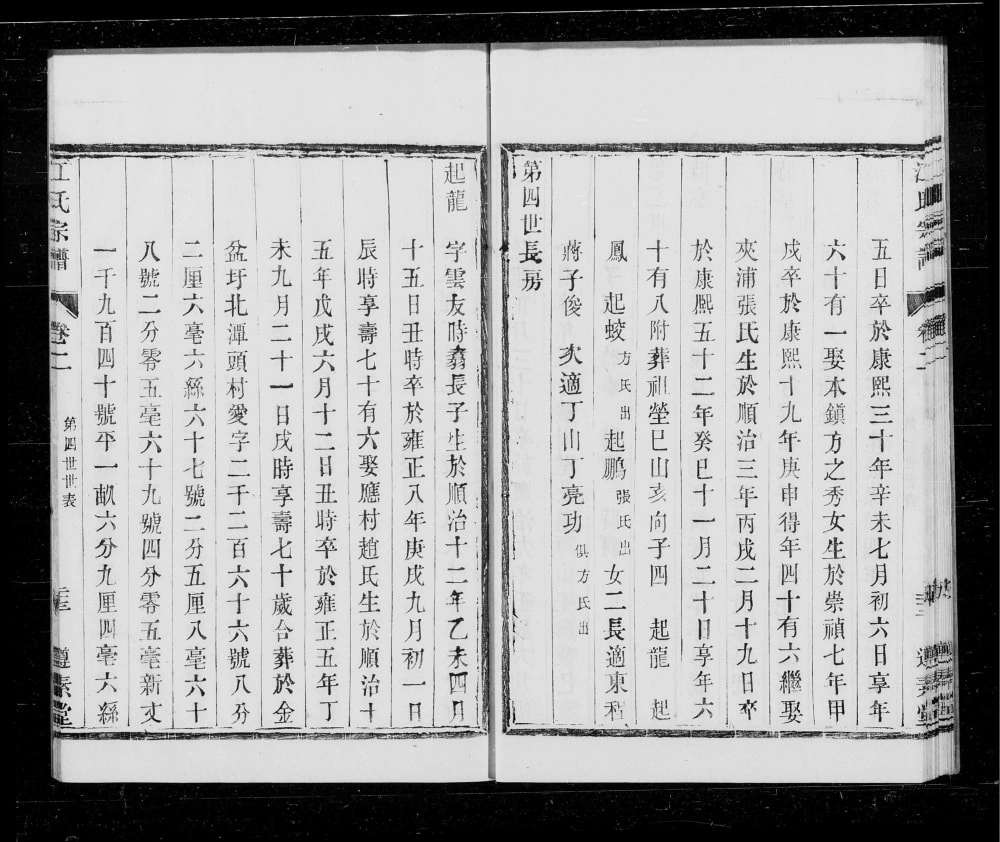 五日卒於康熙三十年辛未七月初六日享年
六十有一娶本鎭方之秀女生於崇禎七年甲
戌卒於康熙十九年庚申得年四十有六繼娶
夾浦張氏生於順治三年丙戌二月十九日卒
於康熙五十二年癸巳十一月二十日享年六
十有八附葬祖塋巳山亥向子四 起龍 起
鳳 起蛟 方氏出 起鵬 張氏出 女二長適東程
蔣子俊 次適丁山丁亮功 俱方氏出
第四世長房
起龍 字雲友時翥長子生於順治十二年乙未四月
十五日丑時卒於雍正八年庚戌九月初一日
辰時享壽七十有六娶應村趙氏生於順治十
五年戊戌六月十二日丑時卒於雍正五年丁
未九月二十一日戌時享壽七十歲合葬於金
盆圩北潭頭村愛字二千二百六十六號八分
二厘六毫六絲六十七號二分五厘八毫六十
八號二分零五毫六十九號四分零五毫新丈
一千九百四十號平一畝六分九厘四毫六絲
江氏宗譜 卷二 第四世世表 遵素堂